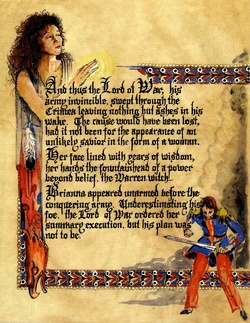 And thus the Lord of War, his
army invincible, swept through the
Crimea leaving nothing but ashes in his
wake. The cause would have been lost,
had it not been for the appearance of an
unlikely savior in the form of a woman.
Her face lined with years of wisdom,
her hands the fountainhead of a power
beyond belief, the Warren witch.
Brianna appeared unarmed before the
conquering army. Underestimating his
foe, the Lord of War ordered her
summary execution, but his plan was
not to be.